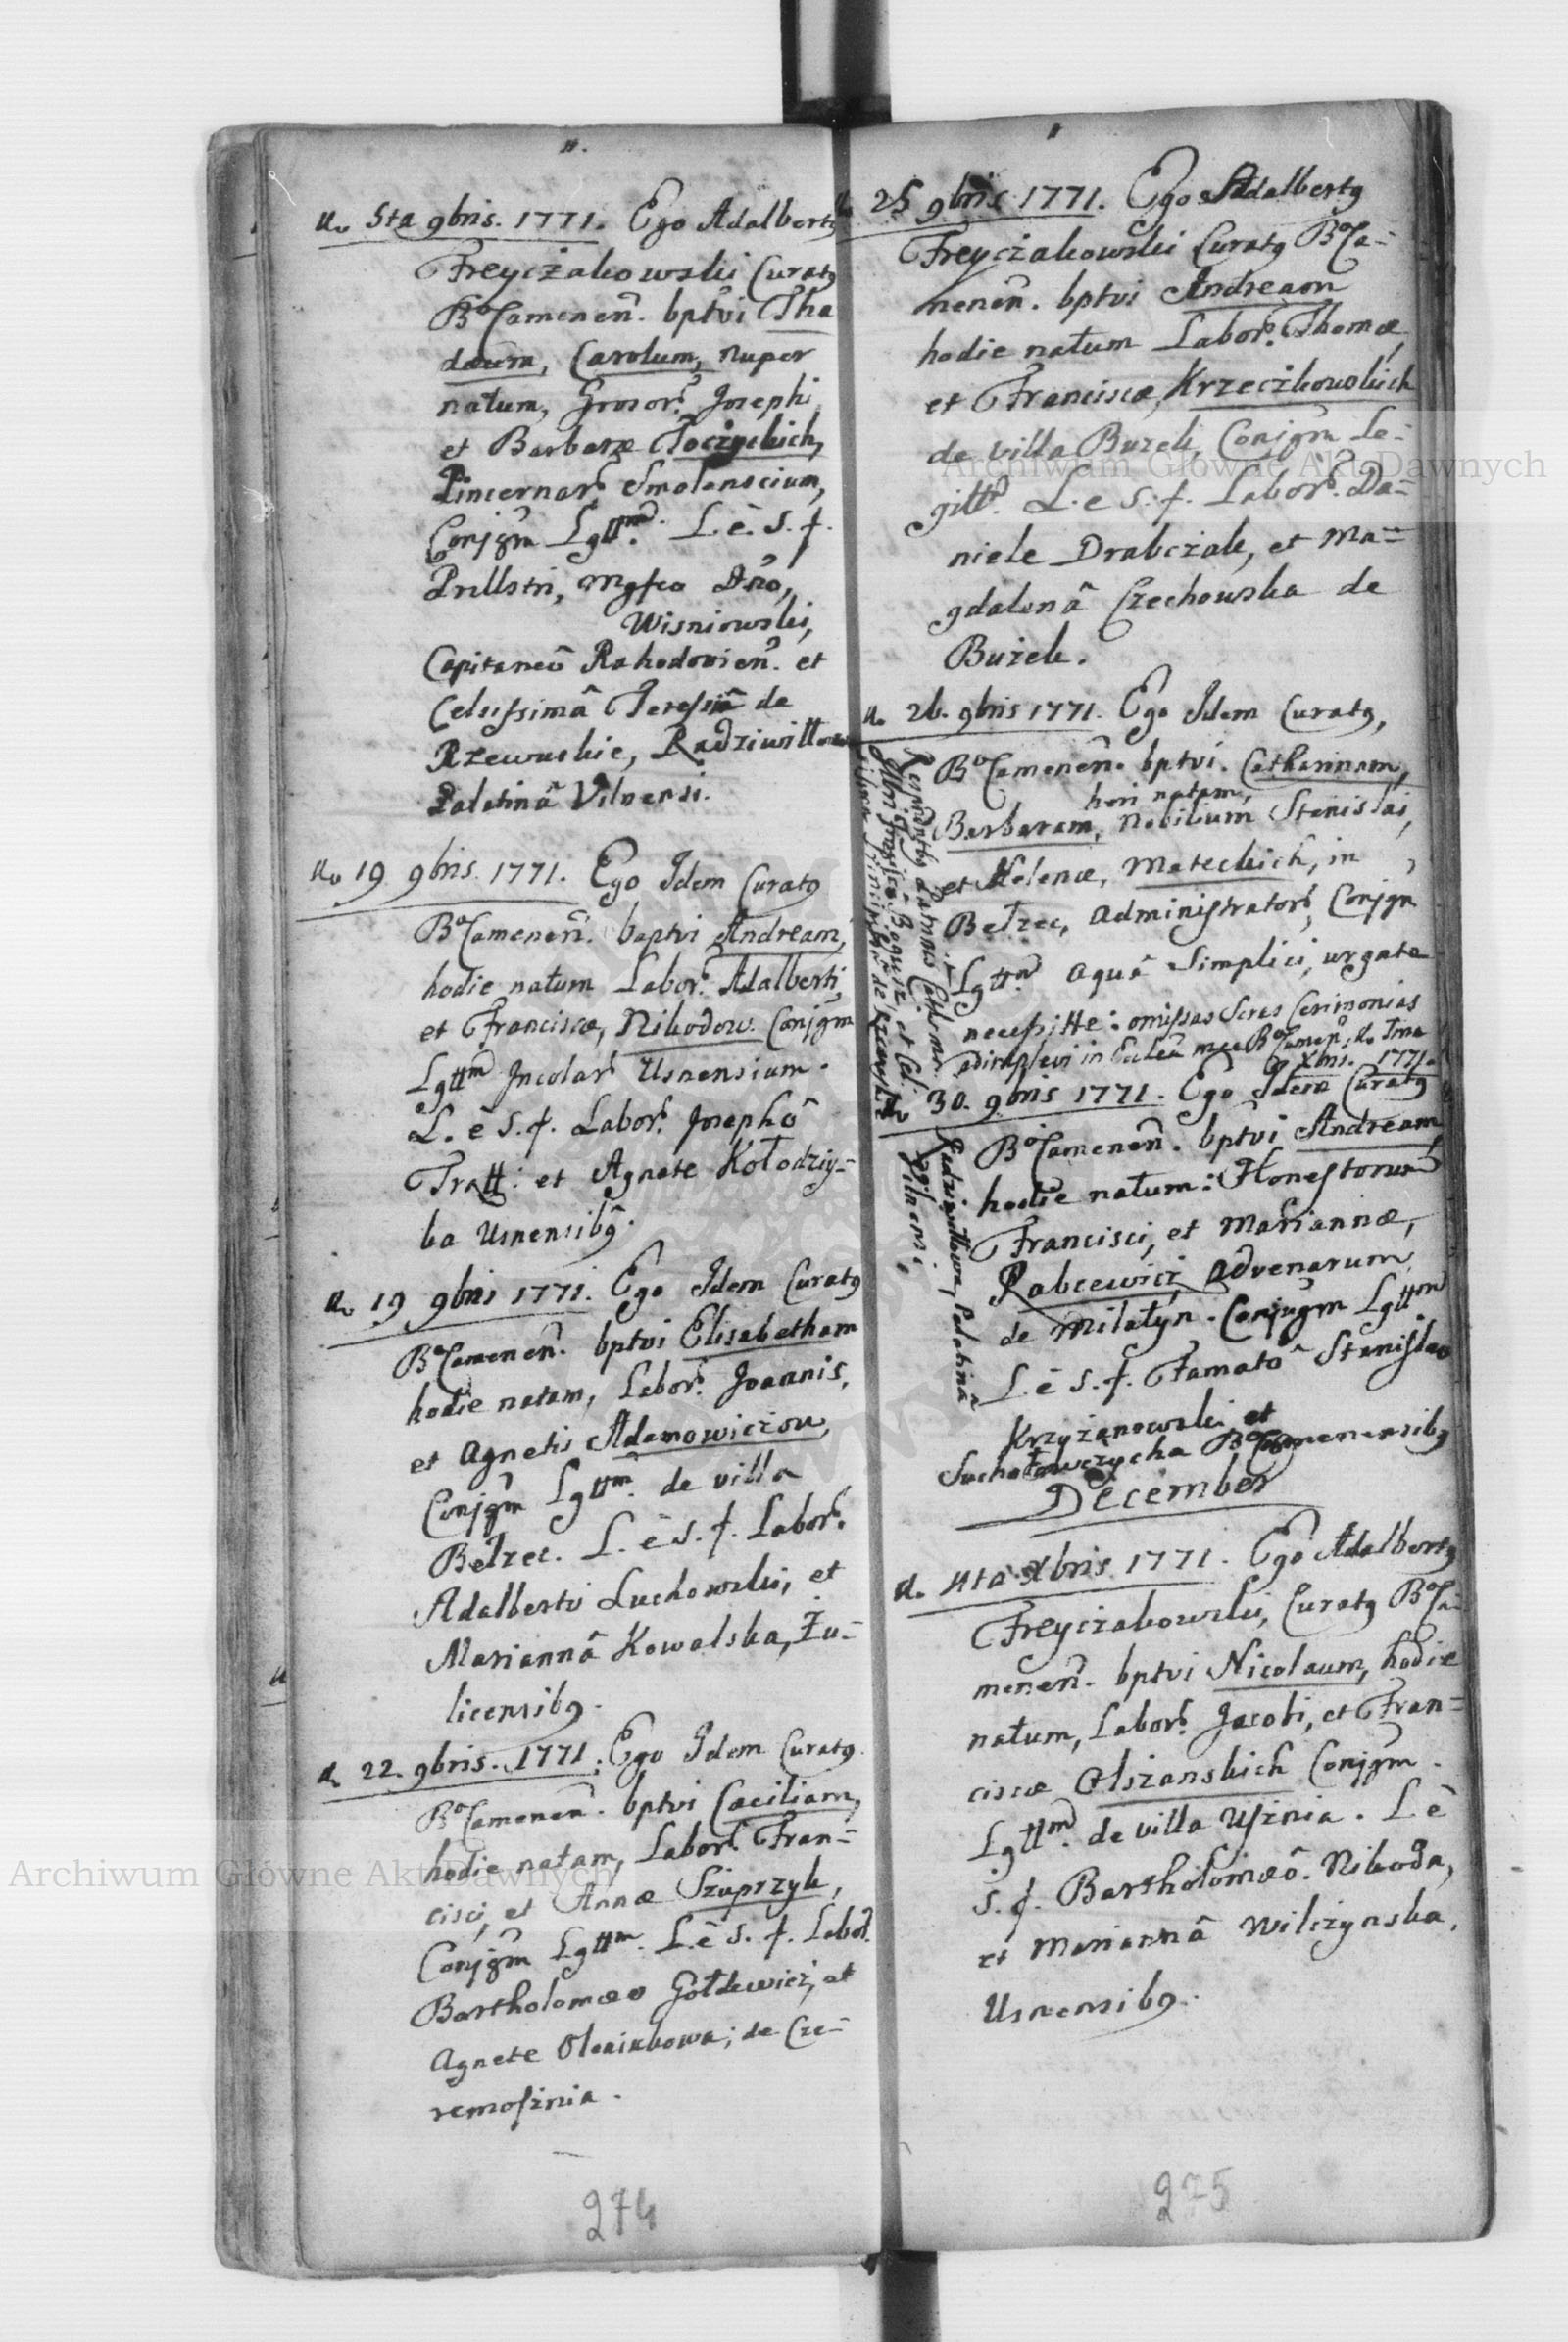 11.
A. 5ta 9bris. 1771. Ego Adalbertꝰ
Freyczakowski Curatꝰ
BoCamenen. bptvi Tha
daeum, Carolum, nuper
natum, Genror. Josephi
et Barbarae Toczyckich,
Pincernar. Smolenscium,
Conjgm Lgttm. L. è. S. f.
Prllstri, Mgfco Dno,
Wisniowski,
Capitaneô Rahodovien. et
Celsissimâ Teressiâ de
Rzewuskie, Radziwiłłowa
Palatinâ Vilnensi.
A. 19 9bris. 1771. Ego Idem Curatꝰ
BoCamenen. baptvi Andream,
hodie natum Labor. Adalberti,
et Franciscae, Nikodow. Conjgm
Lgttm Incolar. Usnensium.
L. è S. f. Labor. Josephô
Tratt: et Agnete Kołodziy-
ka Usnensibꝰ.
A. 19 9bris 1771. Ego Idem Curatꝰ
BoCamenen. bptvi Elisabetham
hodie natam, Labor. Joannis,
et Agnetis Adamowiczow,
Conjgm Lgttm. de villa
Bełzec. L. è S. f. Labor.
Adalberto Luchowski, et
Mariannâ Kowalska, Żu-
licensibꝰ.
A. 22. 9bris. 1771. Ego Idem Curatꝰ
BoCamenen. bptvi Caeciliam,
hodie natam, Labor. Fran-
cisci, et Annae Szuprzyk,
Conjgm Lgttm. L. è S. f. Labor.
Bartholomaeo Gołdewicz, et
Agnete Oleinikowa; de Cze-
remosznia.
274
11
A. 25 9bris 1771. Ego Adalbertꝰ
Freyczakowski Curatꝰ BoCa-
menen. bptvi Andream
hodie natum Labor. Thomae,
et Franciscae, Krzeczkowskich
de villa Buzek, Conjgm Le-
gittm. L. è S. f. Labor. Da-
niele Drabczak, et Ma-
gdalenâ Czechowska de
Bużek.
A. 26. 9bris 1771. Ego Idem Curatꝰ,
BoCamenen. bptvi. Catharinam,
heri natam,
Barbaram, Nobilium Stanislai,
et Helenae, Mateckich, in
Bełzec, Administrator. Conjgm
Lgttm. Aquâ Simplici, urgate
necessitte: omissas Scras Cerimonias
adimplevi in Eccleâ mea BoCamen. A. Ima
Xbris. 1771.
Palatinâ
Vilnensi,
A. 30. 9bris 1771. Ego Idem Curatꝰ
BoCamenen. bptvi Andream
hodie natum: Honestorum
Francisci, et Mariannae,
Rabcewicz, Advenarum
de Milatyn. Conjugm Lgttm
L. è S. f. Famatô Stanislao
Krzyżanowski et
Suchołowczycha BoCamenensibꝰ
December
A. 4ta Xbris 1771. Ego Adalbertꝰ
Freyczakowski, Curatꝰ BoCa-
menen. bptvi Nicolaum, hodie
natum, Labor. Jacobi, et Fran-
ciscae Olszanskich Conjgm.
Lgttm. de villa Usznia. L. è
S. f. Bartholomaeô. Nikoda,
et Mariannâ Wilczynska,
Usnensibꝰ.
275
Archiwum Główne Akt Dawnych
Archiwum Główne Akt Dawnych